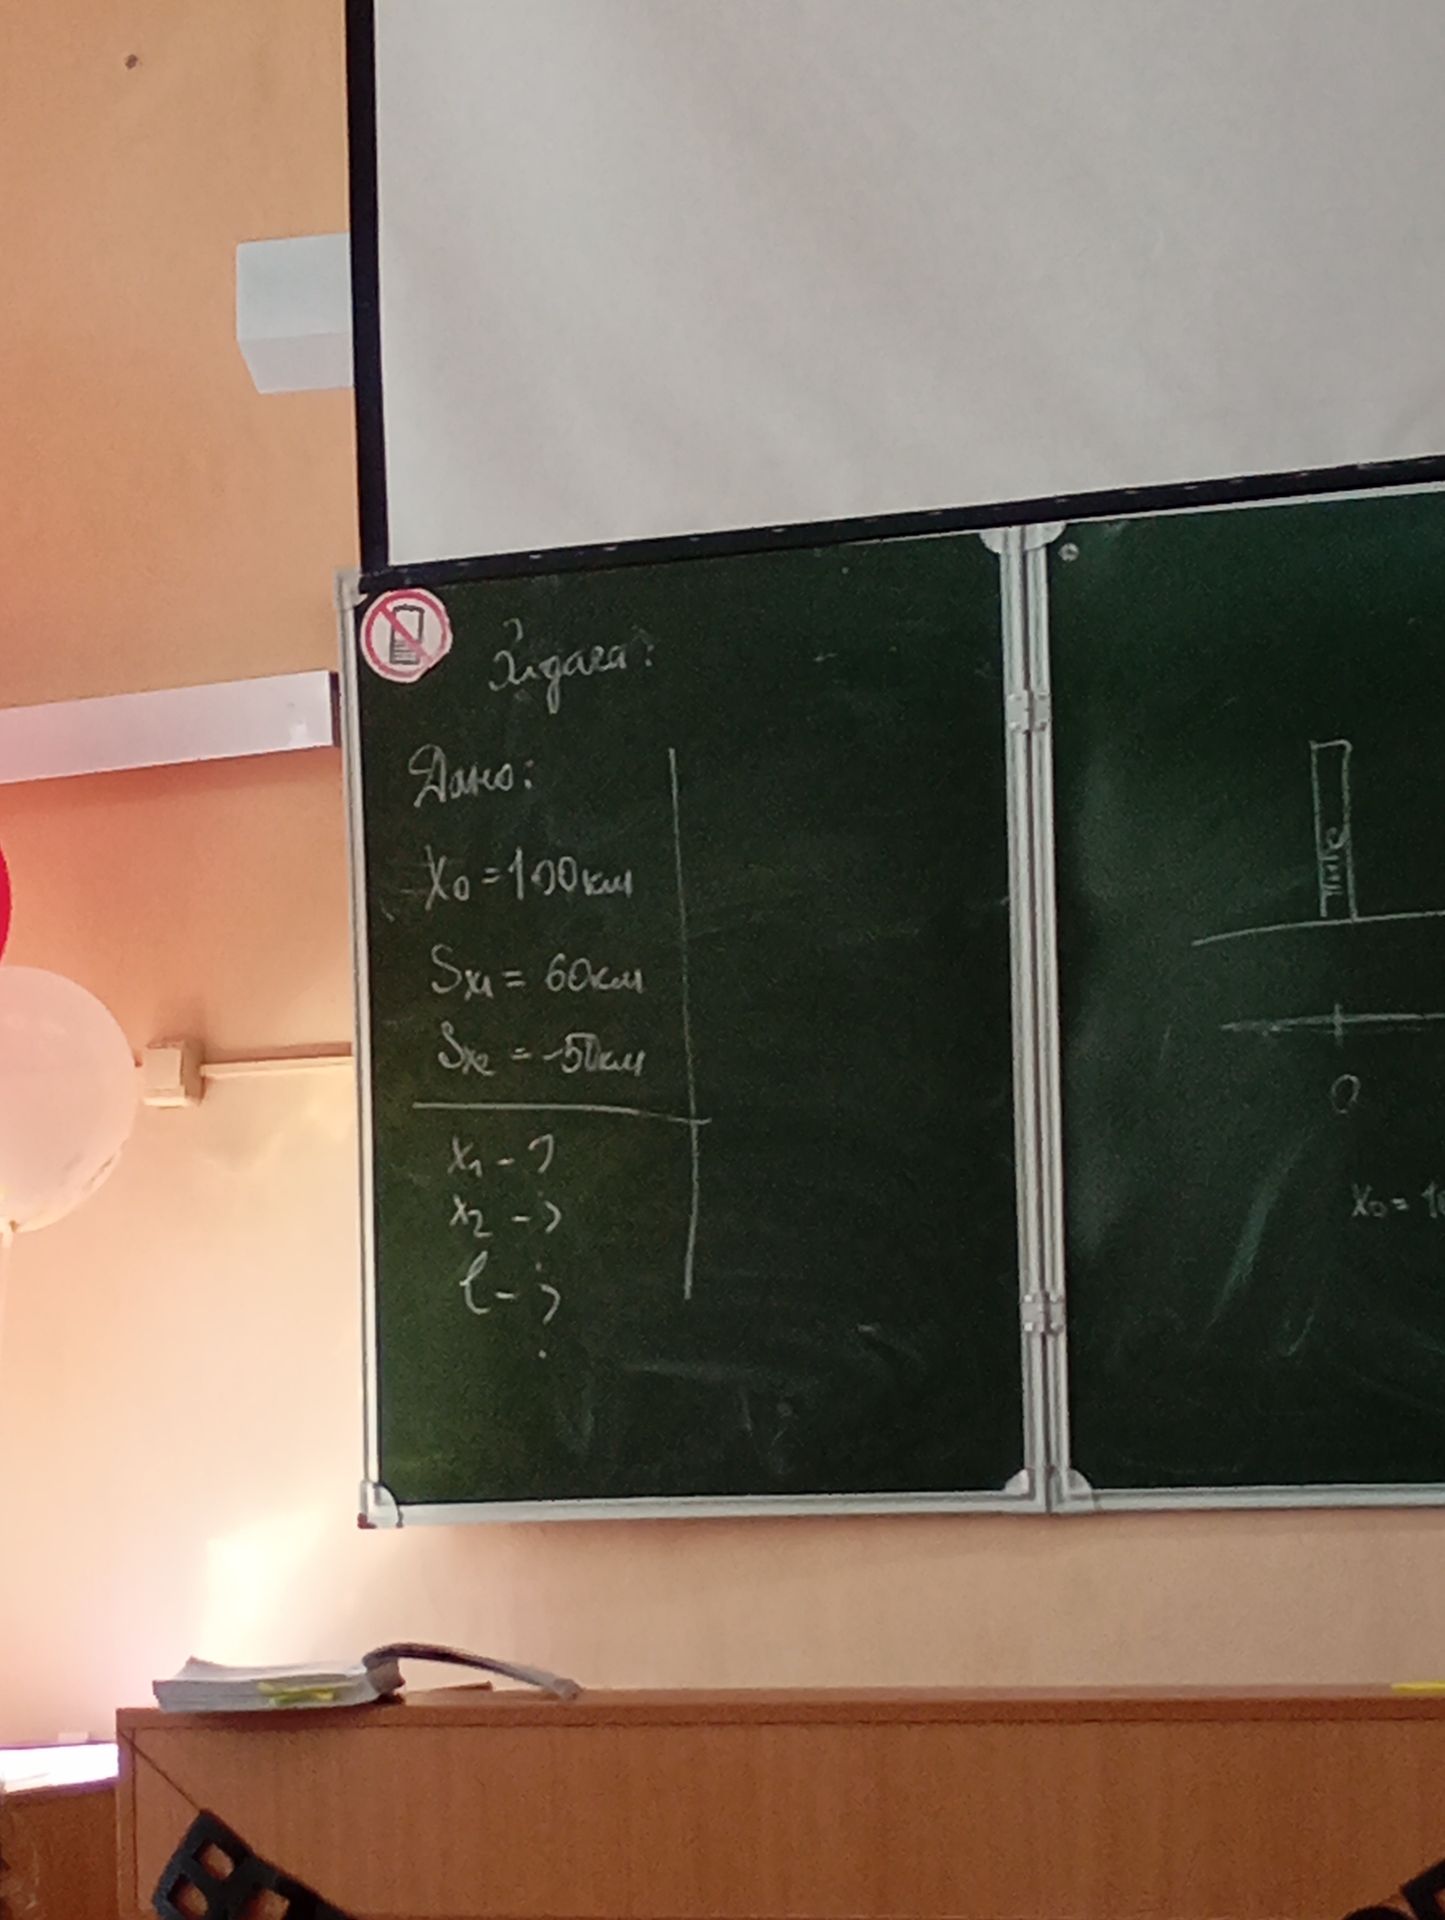 Задача:
Дано:
X₀ = 100 км
Sx₁ = 60 км
Sx₂ = -50 км
x₁ - ?
x₂ - ?
l - ?
0
X₀ = 10